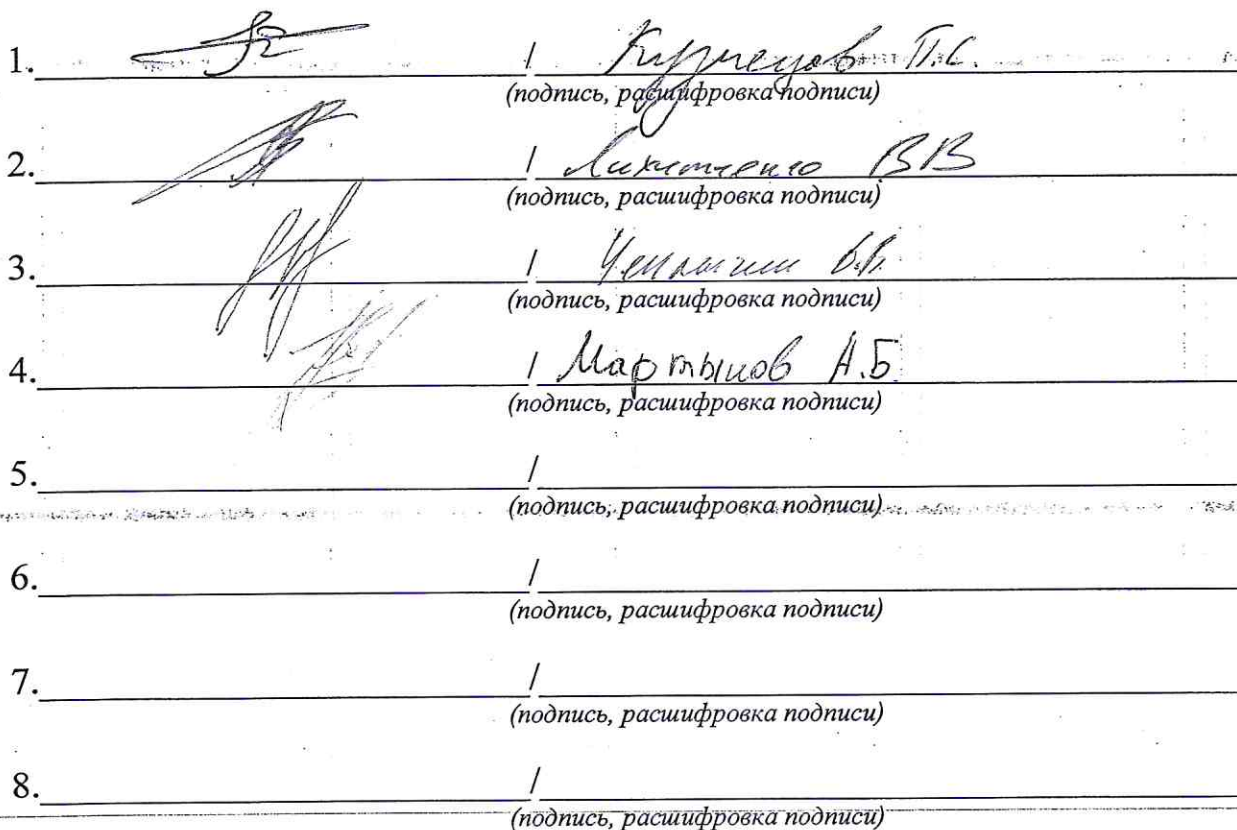 1. / Кузнецов П.С.
(подпись, расшифровка подписи)
2. / ВВ
(подпись, расшифровка подписи)
3. / Чеплыгин
(подпись, расшифровка подписи)
4. / Мартынов А.Б
(подпись, расшифровка подписи)
5. /
(подпись, расшифровка подписи)
6. /
(подпись, расшифровка подписи)
7. /
(подпись, расшифровка подписи)
8. /
(подпись, расшифровка подписи)